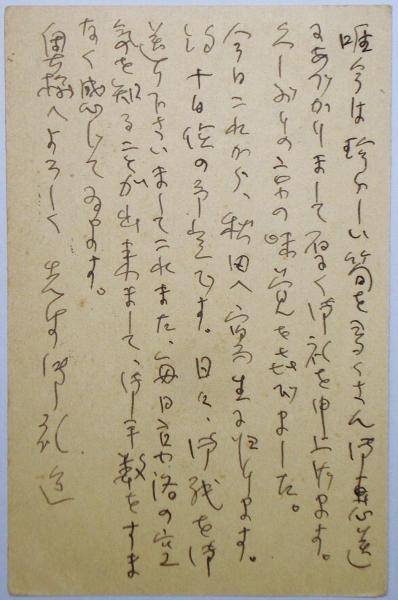 唯今は珍らしい筍を多くさん御恵送
にあづかりまして厚く御礼を申上げます。
久しぶりの京の味覚を喜びました。
今日これから、秋田へ写生に行ります。
約十日位の予定です。日々、御紙を御
送り下さいましてこれまた、毎日京洛の空
気を知ることが出来まして、御手数をすま
なく感じて居ります。
奥様へよろしく 先は御礼迄